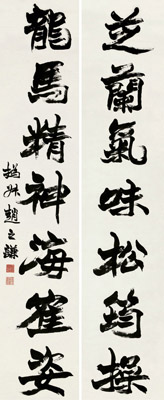 芝蘭氣味松筠操
龍馬精神海隺姿
撝叔趙之謙